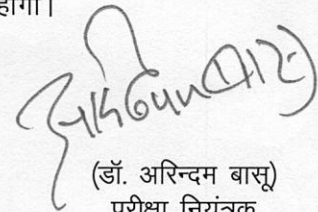 होगा।
(डॉ. अरिन्दम बासू)
परीक्षा नियंत्रक